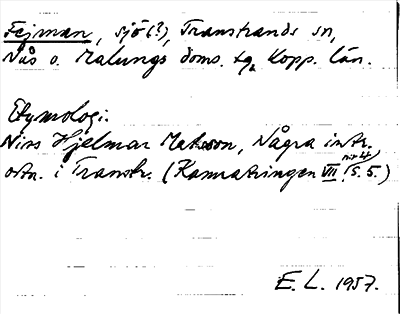 Fejman, sjö (?), Transtrands sn,
Nås o. Malungs doms. tg, Kopp. län.
Etymologi.
Nils Hjelmar Matsson, Några intr.
nr 4,
ortn. i Transtr. (Kamratringen VII s. 5.)
E. L. 1957.